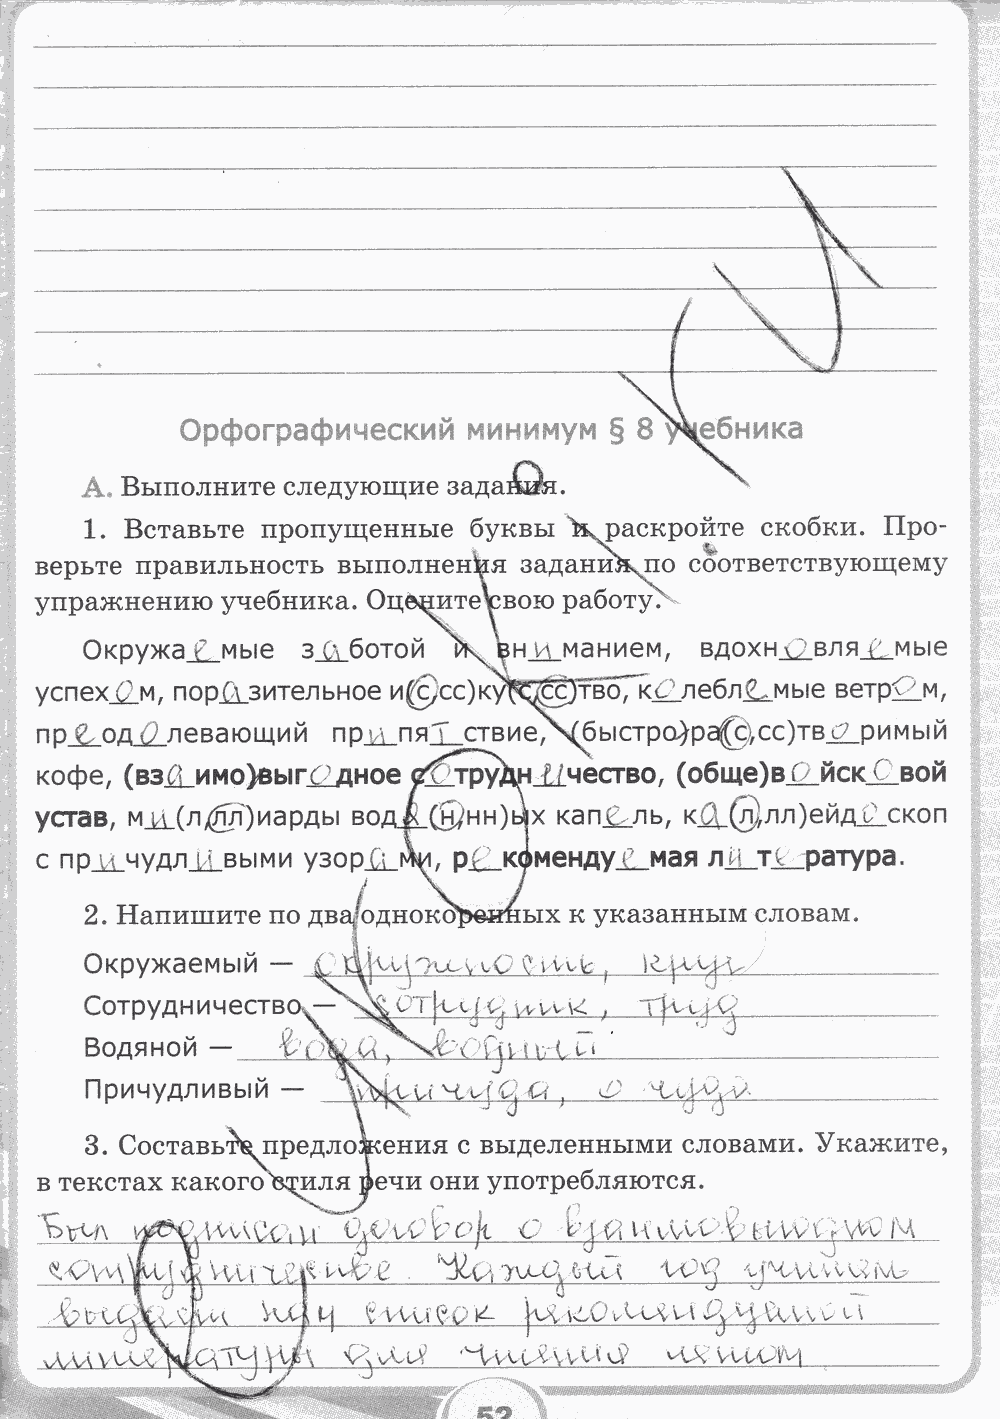 Орфографический минимум § 8 учебника
А. Выполните следующие задания.
1. Вставьте пропущенные буквы и раскройте скобки. Про-
верьте правильность выполнения задания по соответствующему
упражнению учебника. Оцените свою работу.
Окружаемые заботой и вниманием, вдохновляемые
успехом, поразительное и(с,сс)ку(с,сс)тво, колеблемые ветром,
преодолевающий припятствие, (быстро)ра(с,сс)творимый
кофе, (взаимо)выгодное сотрудничество, (обще)войсковой
устав, ми(л,лл)иарды водя(н,нн)ых капель, ка(л,лл)ейдоскоп
с причудливыми узорами, рекомендуемая литература.
2. Напишите по два однокоренных к указанным словам.
Окружаемый — окружность, круг
Сотрудничество — сотрудник, труд
Водяной — вода, водный
Причудливый — причуда, о чуде
3. Составьте предложения с выделенными словами. Укажите,
в текстах какого стиля речи они употребляются.
Был подписан договор о взаимовыгодном
сотрудничестве. Каждый год учитель
выдаёт нам список рекомендуемой
литературы для чтения летом.
52